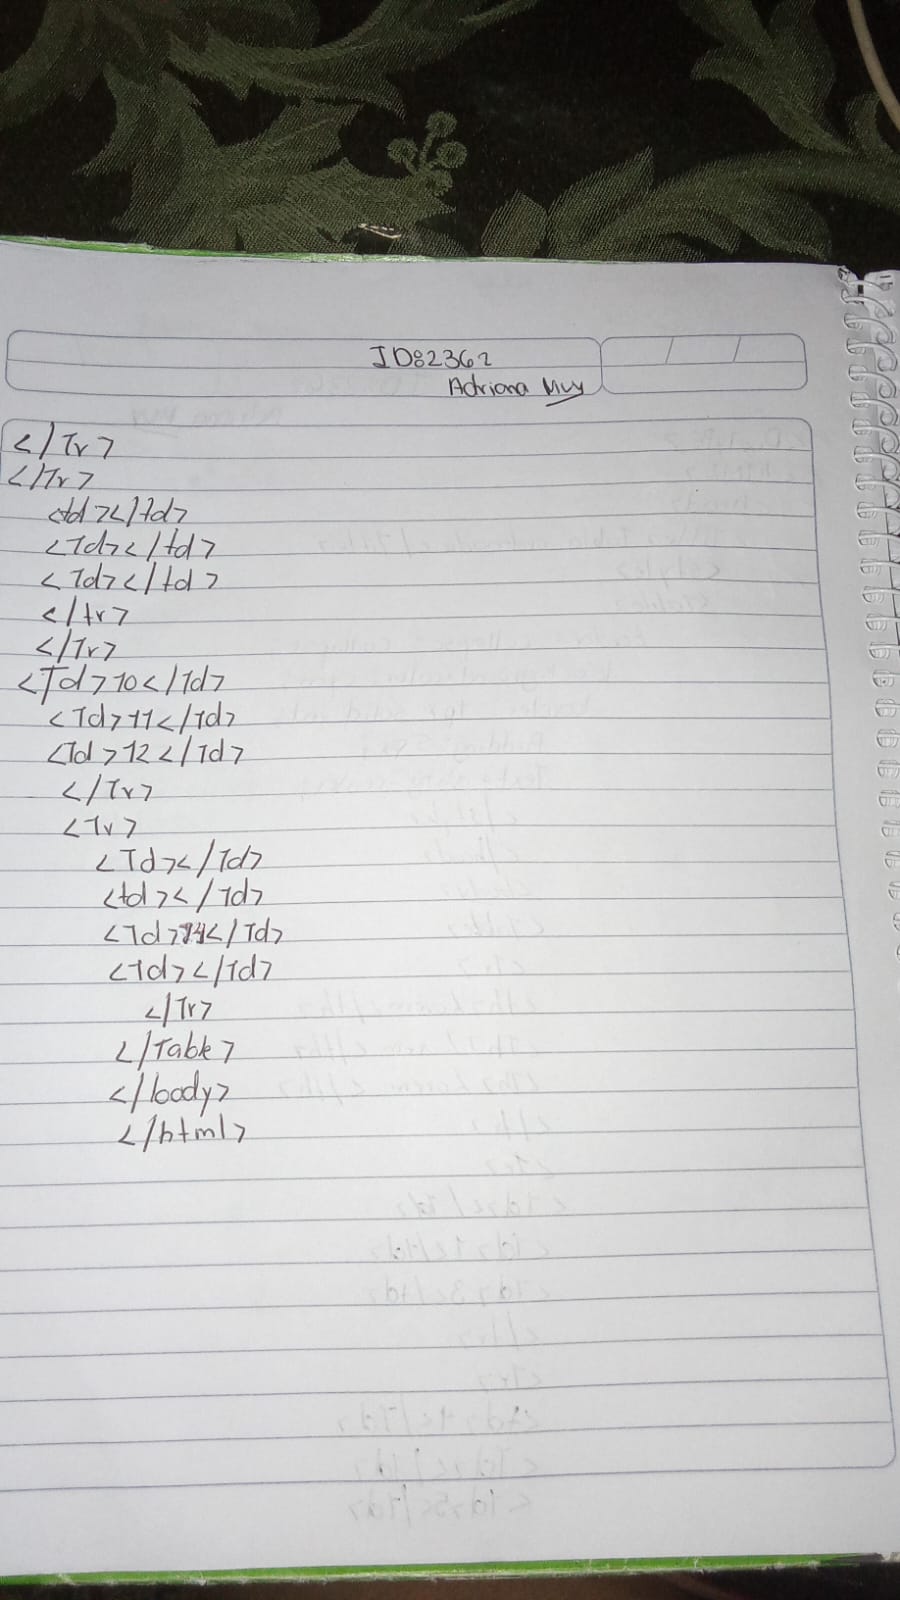 ID82362
Adriana Muy
</Tr>
</Tr>
<td></td>
<Td></td>
<Td></td>
</tr>
</Tr>
<Td>10</Td>
<Td>11</Td>
<Td>12</Td>
</Tr>
<Tr>
<Td></Td>
<td></Td>
<Td></Td>
<Td></Td>
</Tr>
</Table>
</body>
</html>